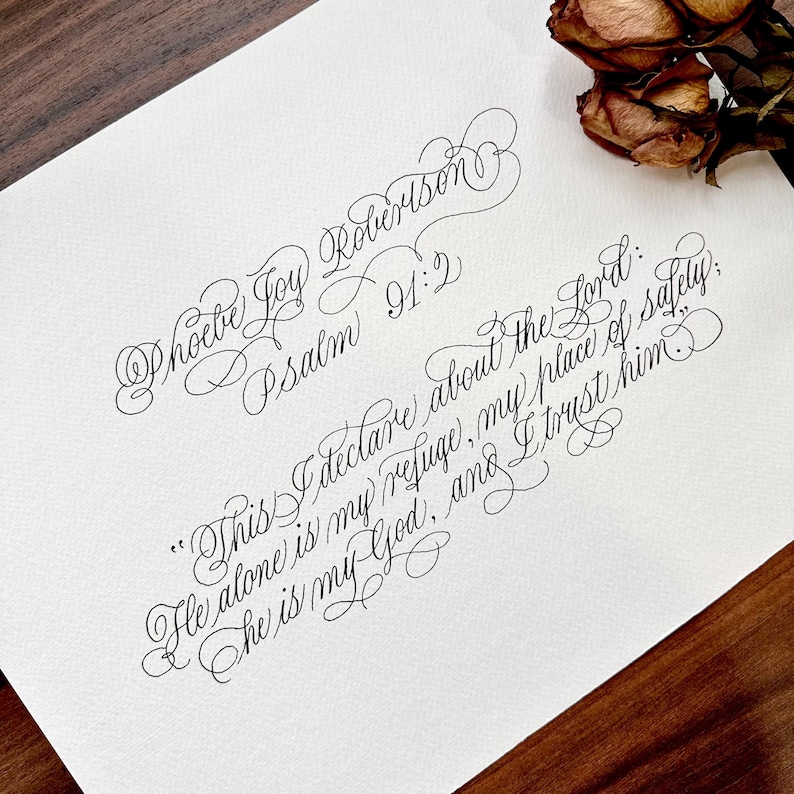 Phoebe Joy Robertson
Psalm 91:2
“This I declare about the Lord:
He alone is my refuge, my place of safety;
he is my God, and I trust him.”